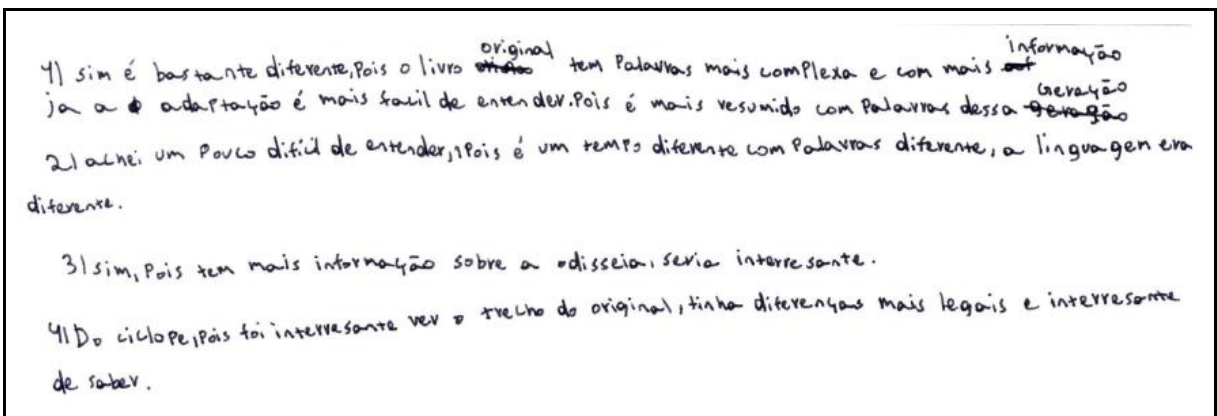 1) sim é bastante diferente, Pois o livro original tem Palavras mais complexa e com mais informação
ja a adaptação é mais facil de entender. Pois é mais resumido com Palavras dessa Geração
2) achei um Pouco dificil de entender, Pois é um tempo diferente com Palavras diferente, a linguagem era
diferente.
3) sim, Pois tem mais informação sobre a odisseia, seria interresante.
4) Do ciclope, Pois foi interresante ver o trecho do original, tinha diferenças mais legais e interresante
de saber.